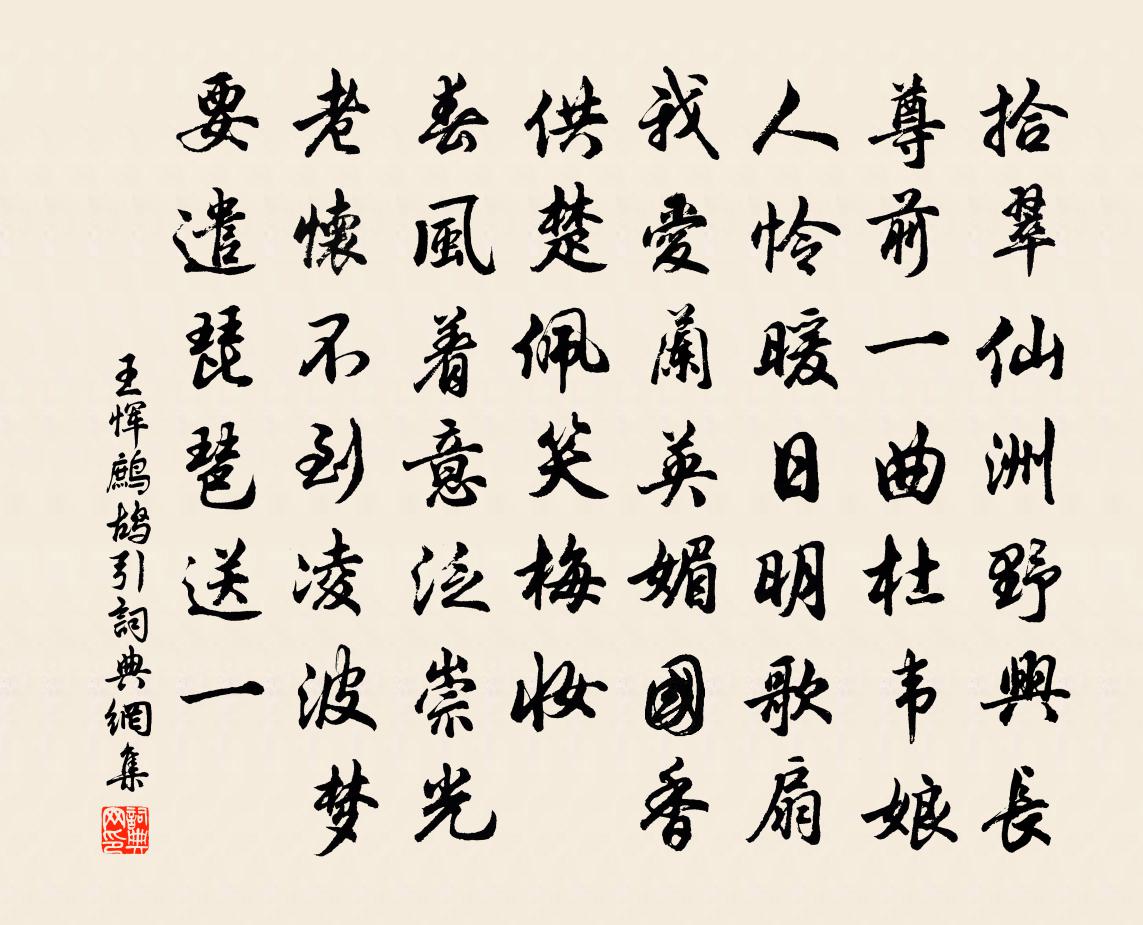 拾翠仙洲野興長
尊前一曲杜韦娘
人怜暖日明歌扇
我愛蘭英媚國香
供楚佩笑梅妝
春風着意泛崇光
老懷不到凌波梦
要遣琵琶送一
王恽鷓鴣引詞典網集
詞典网印